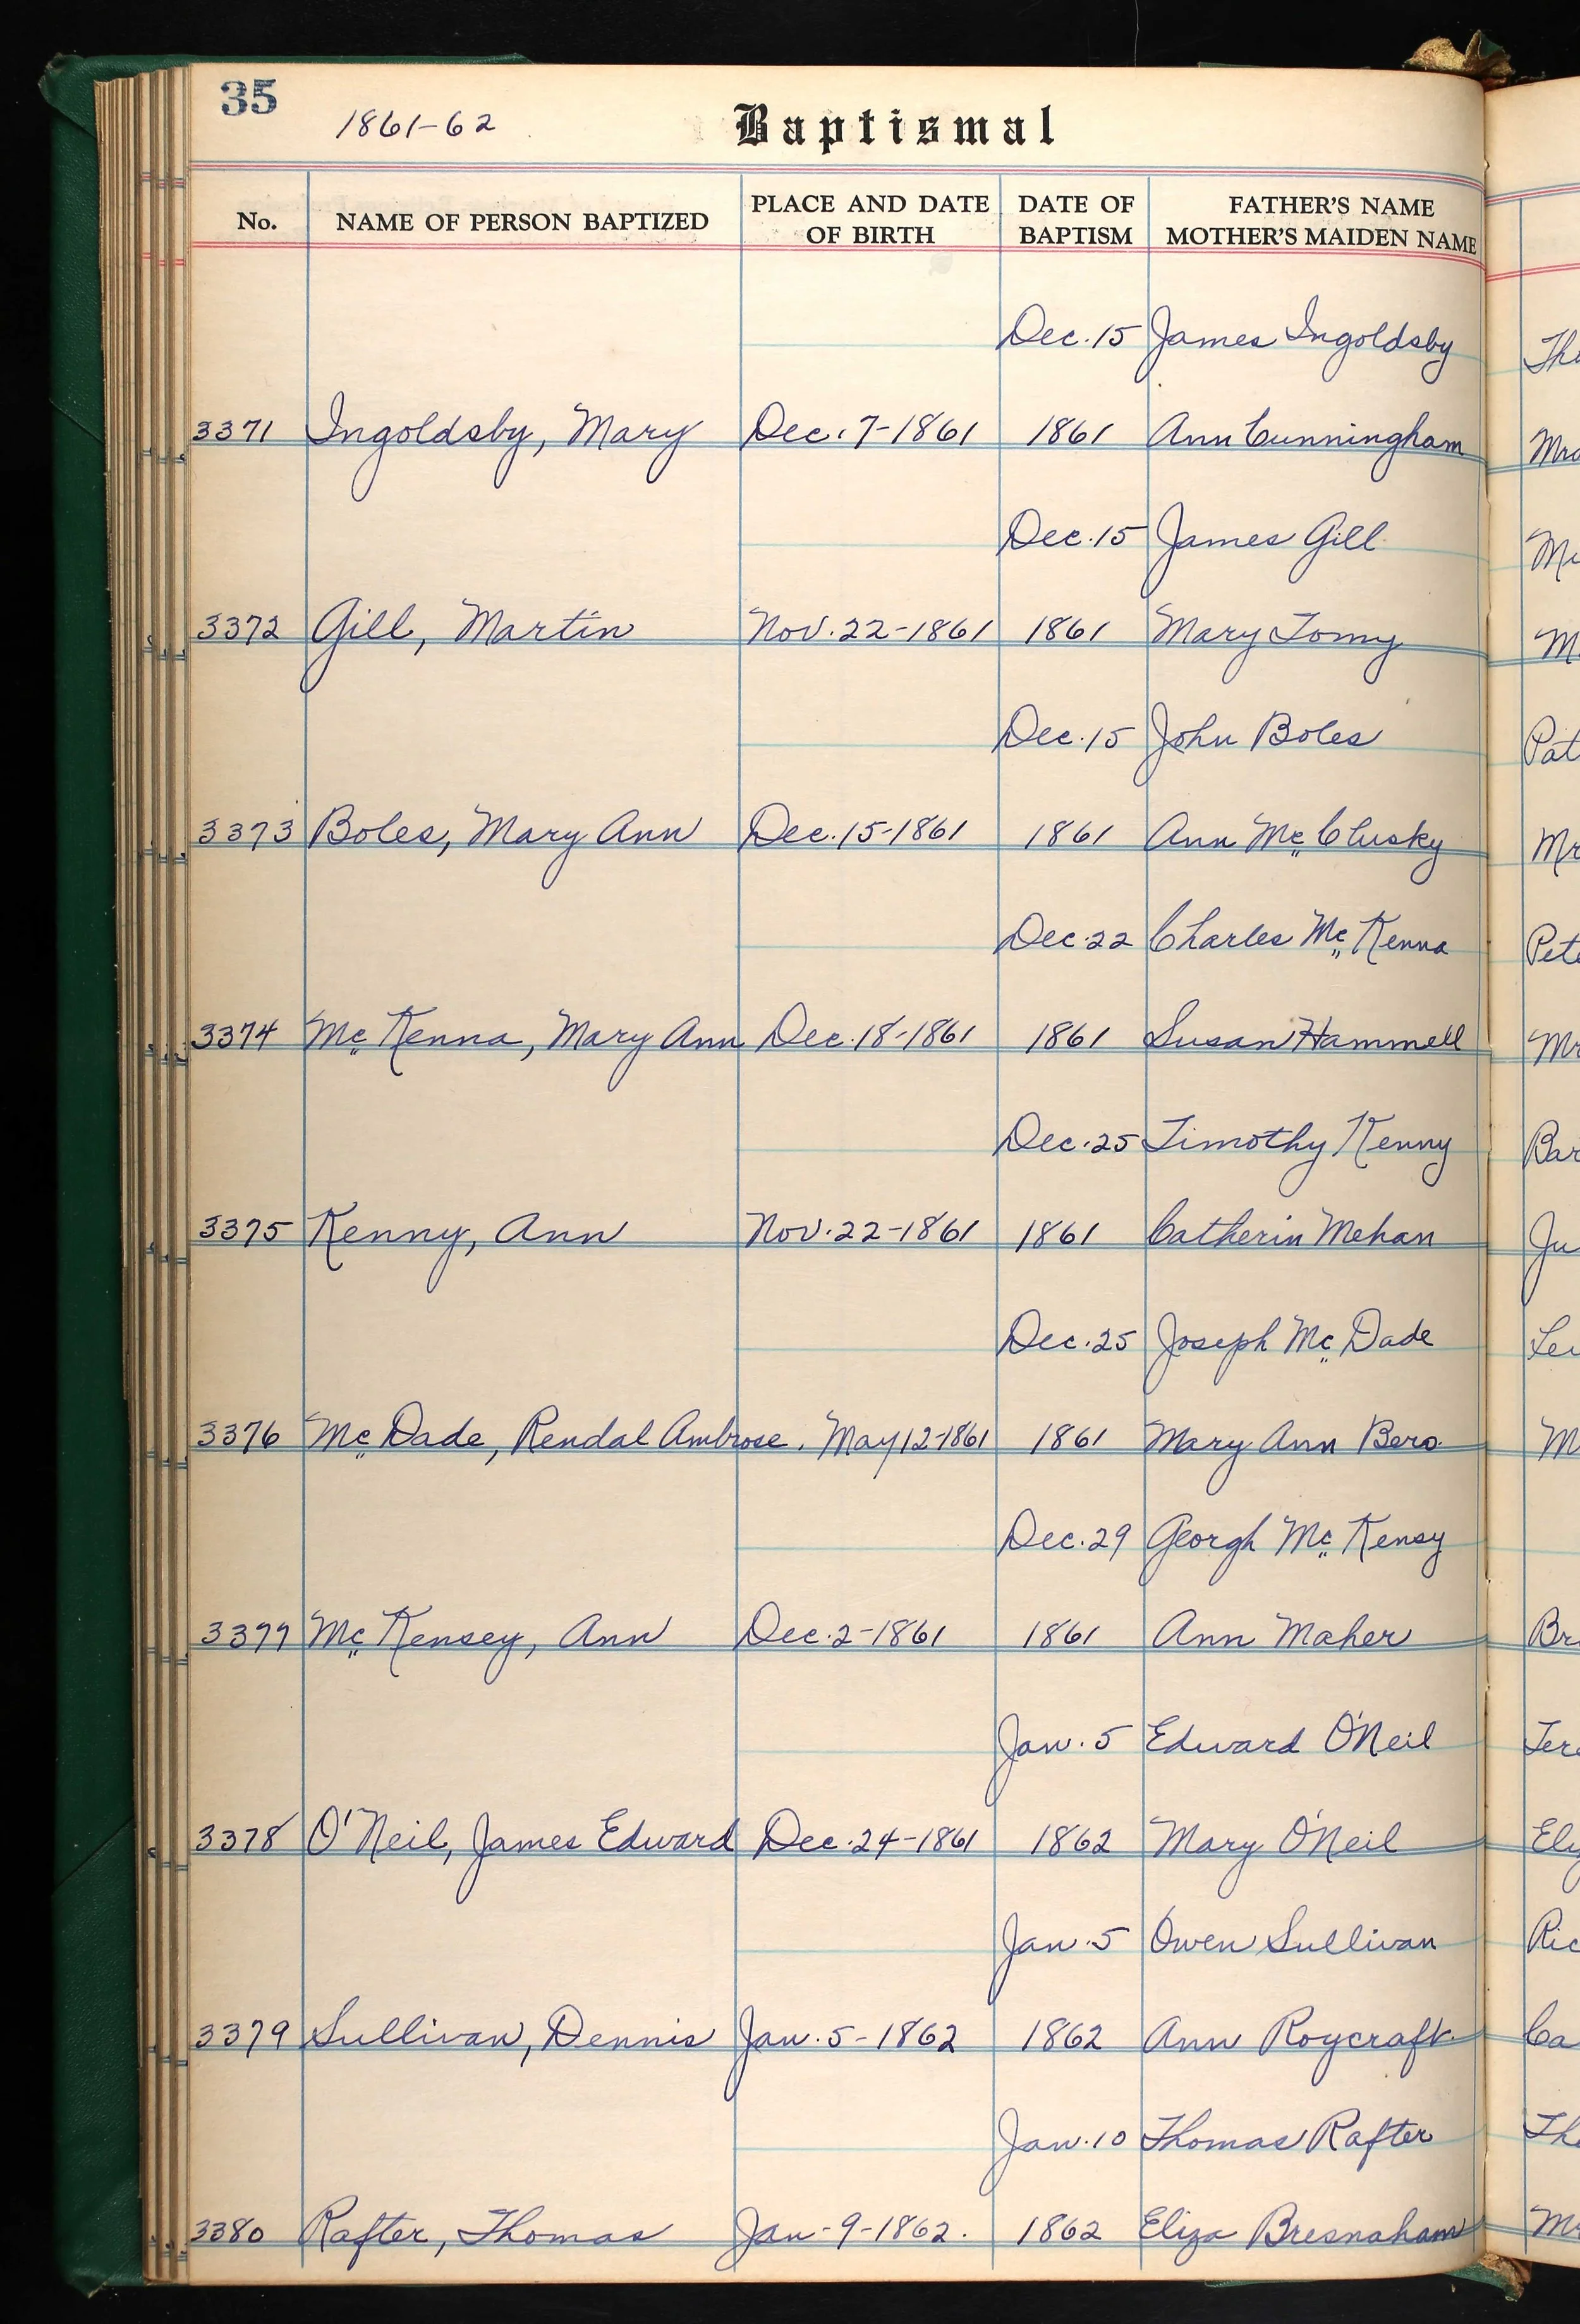 35
1861-62
Baptismal
No. NAME OF PERSON BAPTIZED PLACE AND DATE OF BIRTH DATE OF BAPTISM FATHER'S NAME MOTHER'S MAIDEN NAME
Dec. 15 James Ingoldsby
3371 Ingoldsby, Mary Dec. 7-1861 1861 Ann Cunningham
Dec. 15 James Gill
3372 Gill, Martin Nov. 22-1861 1861 Mary Tomy
Dec. 15 John Boles
3373 Boles, Mary Ann Dec. 15-1861 1861 Ann McClusky
Dec. 22 Charles McKenna Pete
3374 McKenna, Mary Ann Dec. 18-1861 1861 Susan Hammell
Dec. 25 Timothy Kenny
3375 Kenny, Ann Nov. 22-1861 1861 Catherin Mehan
Dec. 25 Joseph McDade
3376 McDade, Rendal Ambrose. May 12-1861 1861 Mary Ann Bero
Dec. 29 Georgh McKensy
3377 McKensey, Ann Dec. 2-1861 1861 Ann Maher
Jan. 5 Edward O'Neil
3378 O'Neil, James Edward Dec. 24-1861 1862 Mary O'Neil
Jan. 5 Owen Sullivan
3379 Sullivan, Dennis Jan. 5-1862 1862 Ann Roycraft
Jan. 10 Thomas Rafter
3380 Rafter, Thomas Jan-9-1862. 1862 Eliza Bresnaham